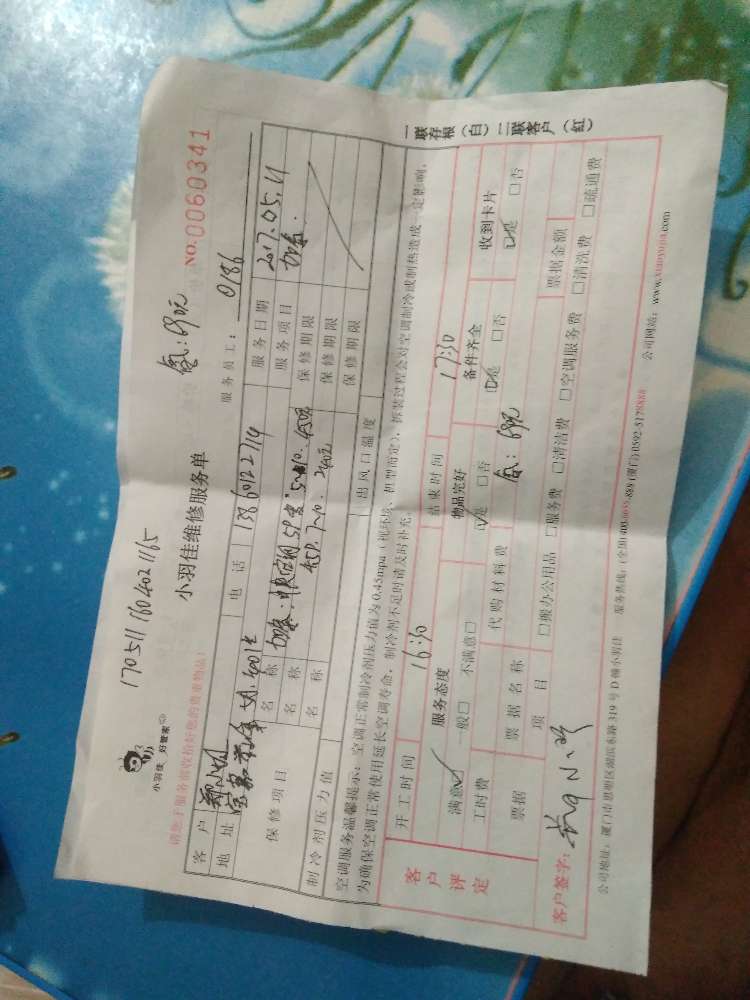 170511160402 1165
小羽佳 好管家
小羽佳维修服务单
氨:69元
NO.0060341
请您于服务前收捡好您的贵重物品!
服务员工:0186
客户 郑小姐 电话 13860122114 服务日期 2017.05.11
地址 5#.4001室 服务项目 加氨.
保修项目 名称 加氨:中央空调5P 5~10.450元 保修期限
名称 4.5P.7~10.240元 保修期限
名称 保修期限
制冷剂压力值 出风口温度
空调服务温馨提示:空调正常制冷剂压力值为0.45mpa(视环境、机型而定),拆装过程会对空调制冷或制热造成一定影响,
为确保空调正常使用延长空调寿命,制冷剂不足时请及时补充。
客户评定
开工时间 16:30 结束时间 17:30
服务态度 物品完好 备件齐全 收到卡片
满意☑ 一般□ 不满意□ ☑是 □否 ☑是 □否 ☑是 □否
工时费 代购材料费 氨:69元
票据 票据名称 票据金额
项目 □搬办公用品 □服务费 □清洁费 □空调服务费 □清洗费 □疏通费
客户签字:
公司地址:厦门市思明区湖滨东路319号D幢小羽佳 服务热线:(全国)400-6655-888 (厦门)0592-5178888 公司网站:www.xiaoyujia.com
一联存根(白)二联客户(红)